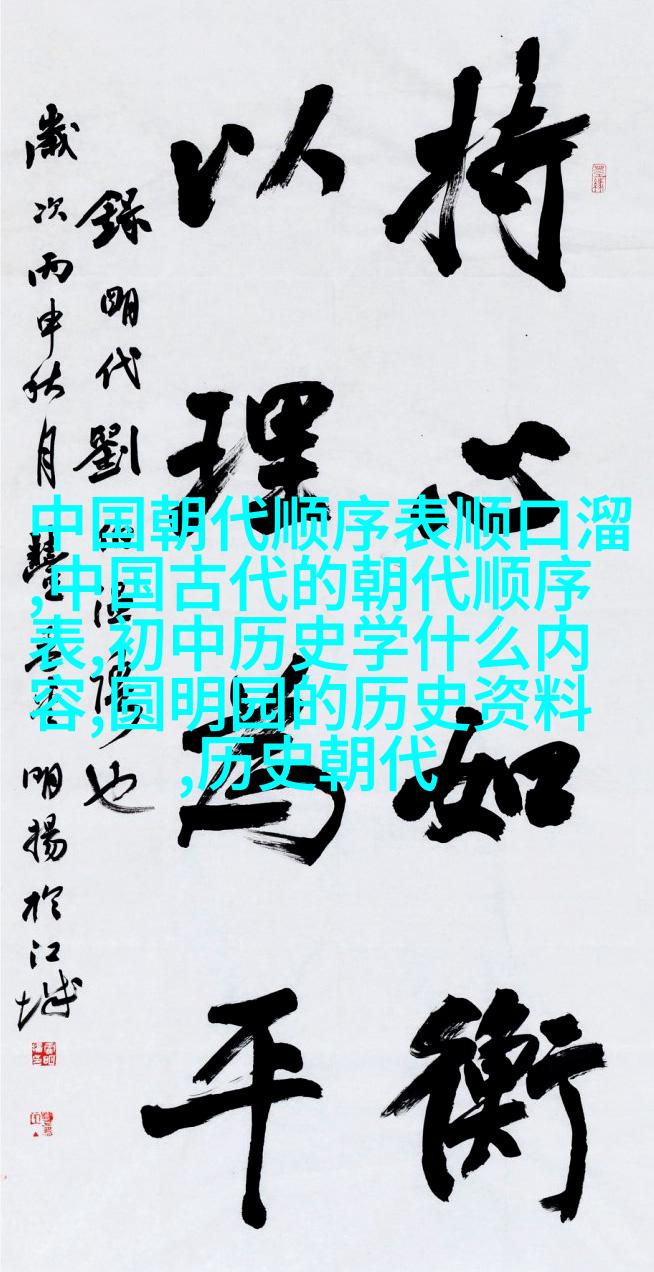 持心如衡
以理为平
錄明代劉
也
歲次丙申秋月
明揚於江城
中国朝代顺序表顺口溜
,中国古代的朝代顺序
表,初中历史学什么内
容,圆明园的历史资料
,历史朝代